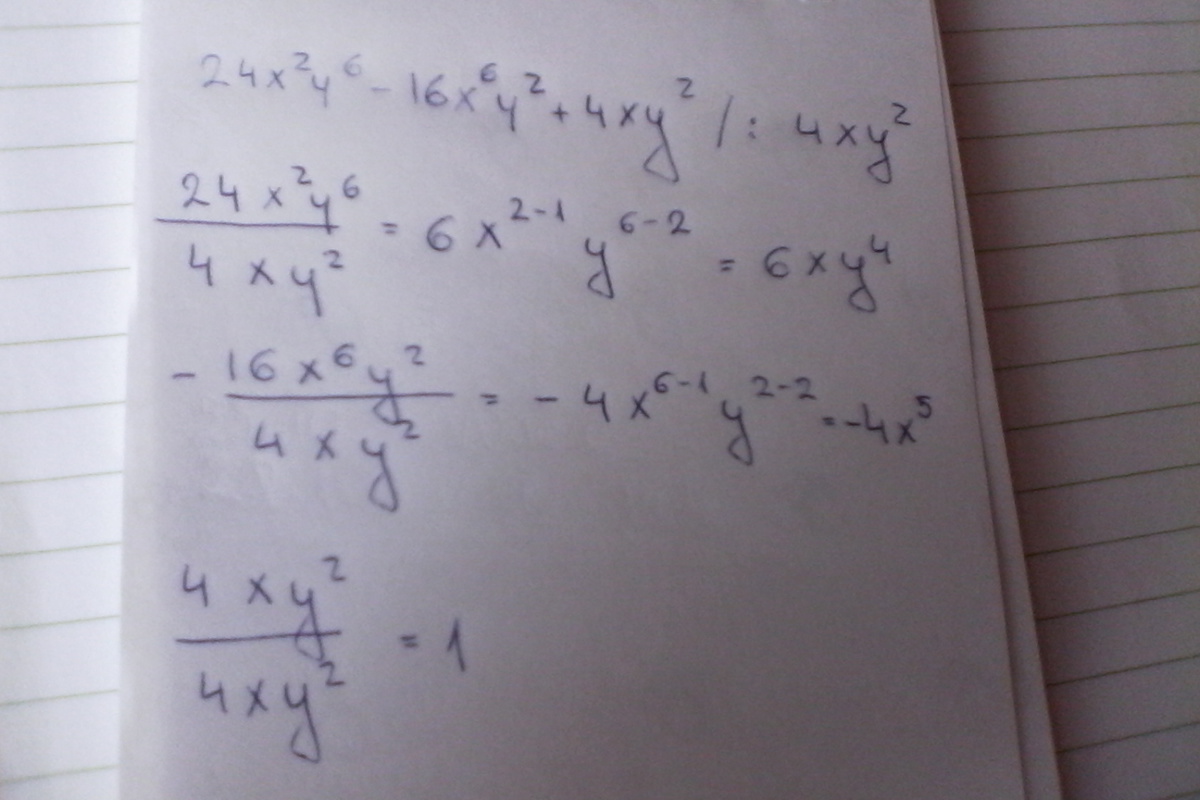 24x²y⁶ - 16x⁶y² + 4xy² /: 4xy²
24x²y⁶ / 4xy² = 6x²⁻¹ y⁶⁻² = 6xy⁴
- 16x⁶y² / 4xy² = - 4x⁶⁻¹ y²⁻² = -4x⁵
4xy² / 4xy² = 1